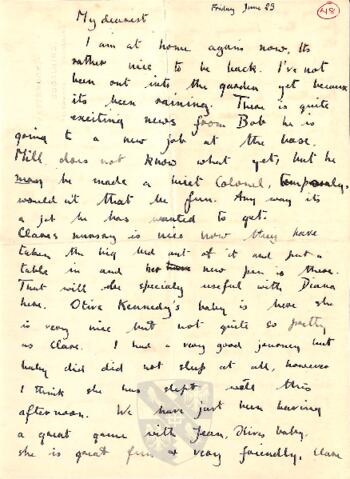 Friday June 23
48
My dearest
I am at home again now. Its
rather nice to be back. I've not
been out into the garden yet because
its been raining. There is quite
exciting news from Bob he is
going to a new job at the base.
Mill does not know what yet, but he
may be made a Colonel, temporaly,
wouldn't that be fun. Any way its
a job he has wanted to get.
Clares nursery is nice now they have
taken the big bed out of it and put a
table in and her new pen is there.
That will be specialy useful with Diana
here. Olive Kennedy's baby is here she
is very nice but not quite so pretty
as Clare. I had a very good journey but
baby did did not sleep at all, however
I think she has slept well this
afternoon. We have just been having
a great game with Jean, Olives baby.
she is great fun & very friendly, Clare